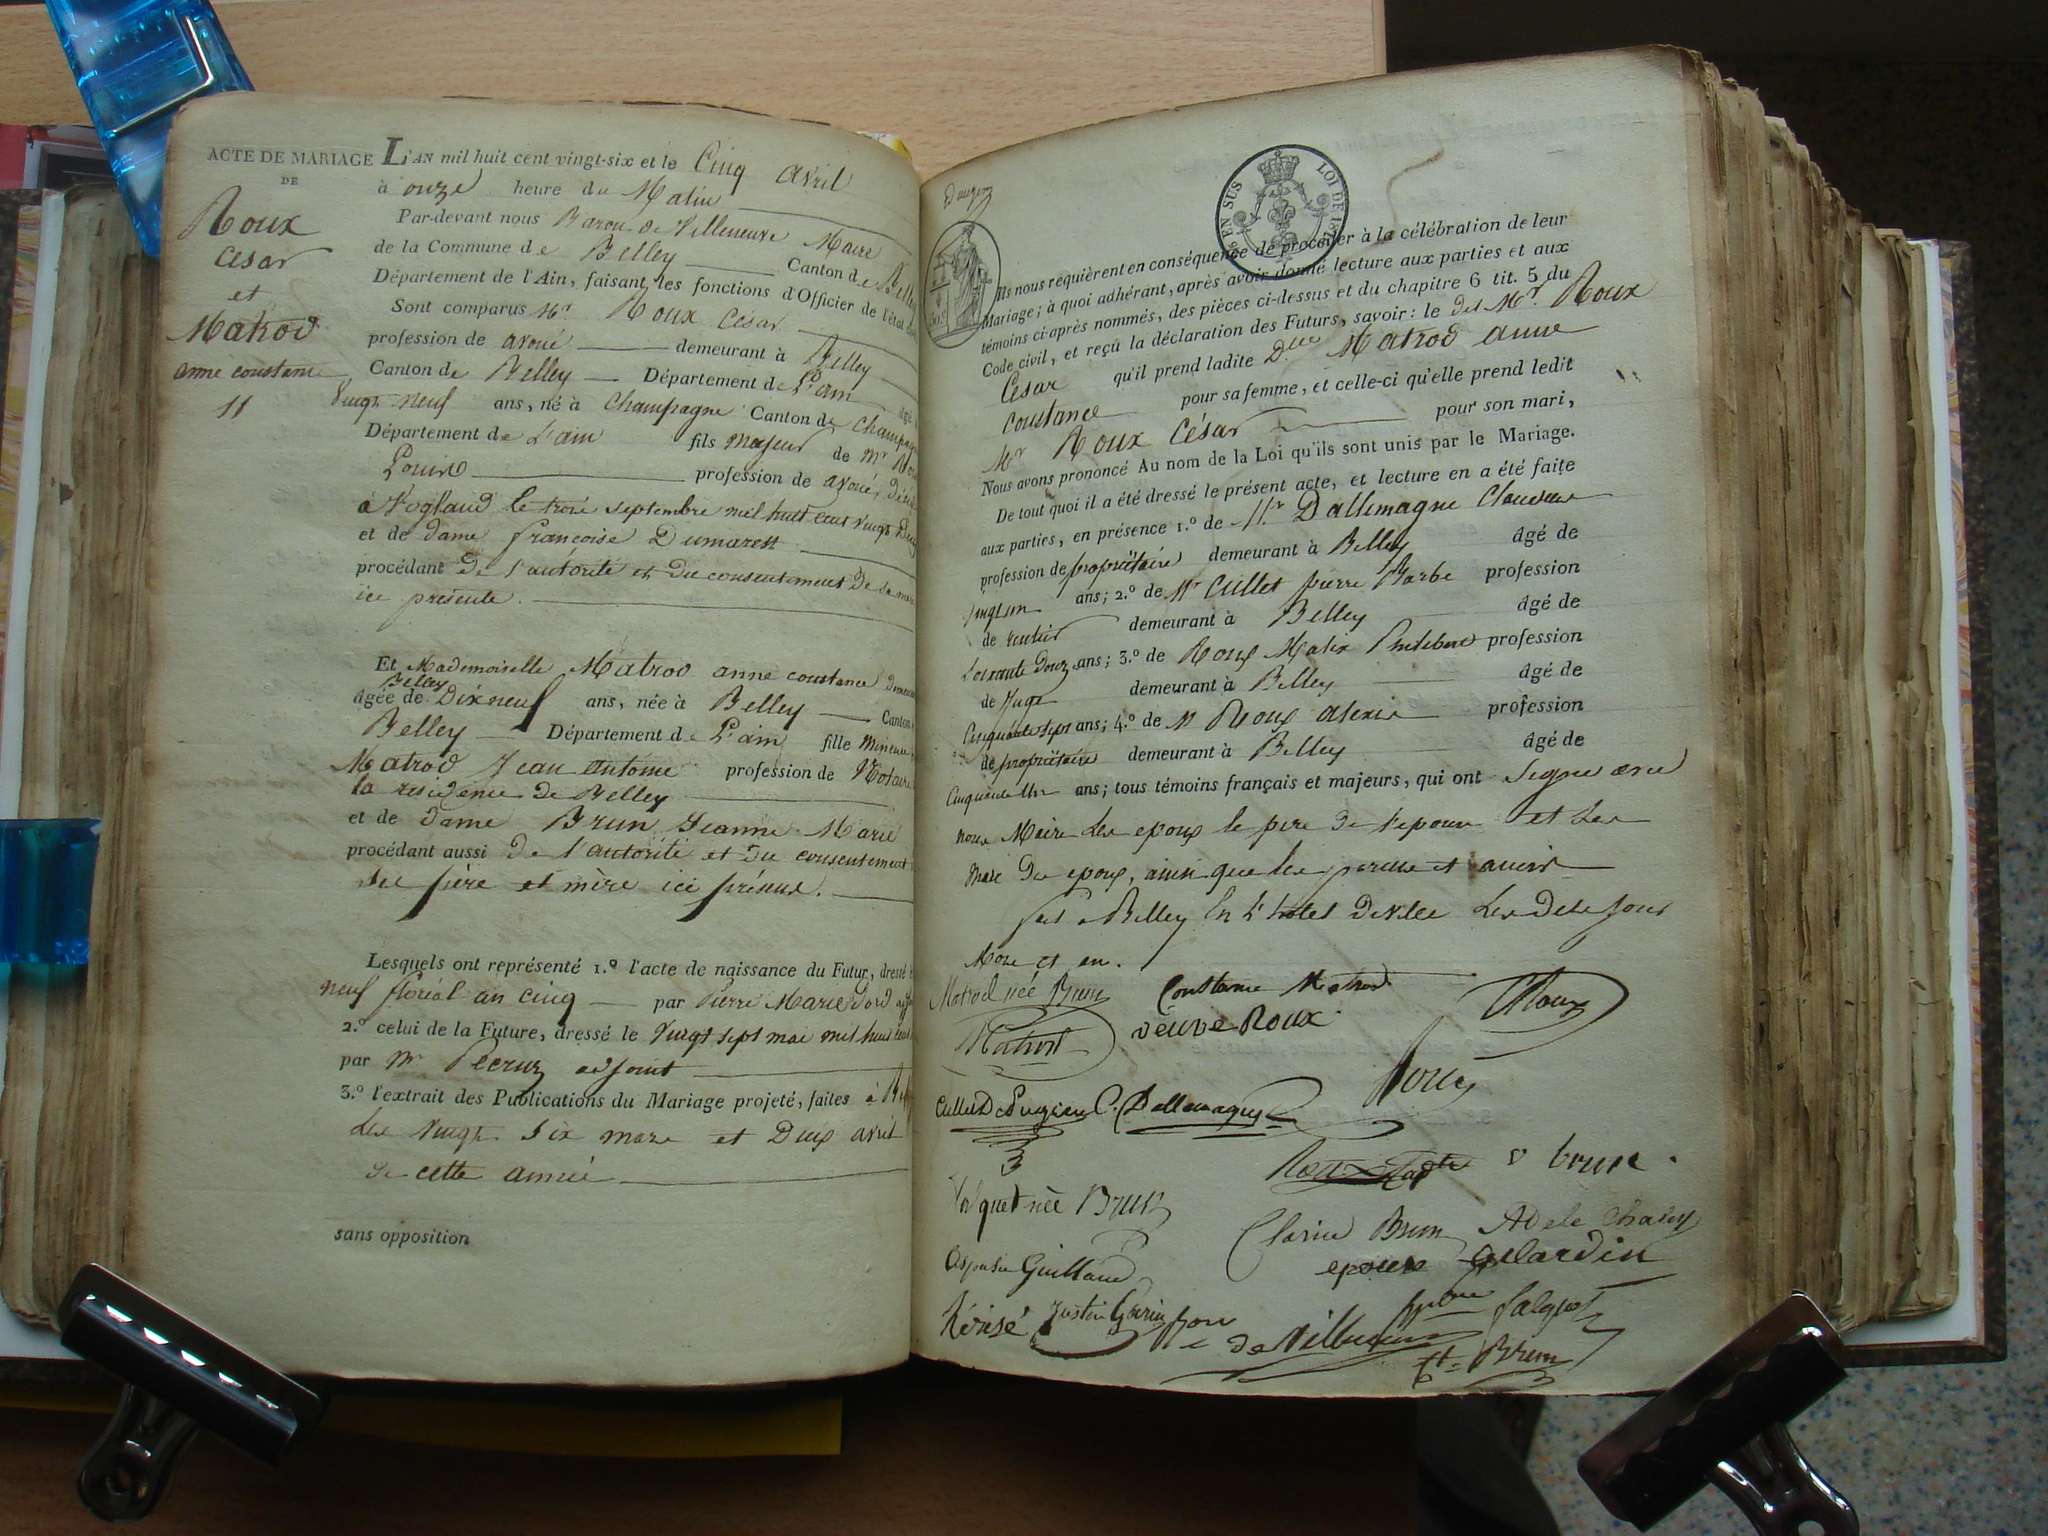 ACTE DE MARIAGE L'AN mil huit cent vingt-six et le Cinq avril
DE
à onze heure du Matin
Roux
César
et
Matrod
anne constance
11
Par-devant nous Baron de Villeneuve Maire
de la Commune de Belley Canton de Belley
Département de l'Ain, faisant les fonctions d'Officier de l'état
Sont comparus Mr Roux César
profession de avoué demeurant à Belley
Canton de Belley Département de L'ain âgé
Vingt neuf ans, né à Champagne Canton de Champagne
Département de L'ain fils majeur de Mr
Louis profession de avoué,
à le trois septembre mil huit cent vingt
et de dame françoise Dumarest
procédant de l'autorité et du consentement de sa mère
ici présente.
Et Mademoiselle Matrod anne constance
Belley
âgée de Dix neuf ans, née à Belley Canton
Belley Département de L'ain fille mineure
Matrod Jean antoine profession de Notaire
la residence de Belley
et de dame Brun Jeanne Marie
procédant aussi de l'autorité et du consentement
des père et mère ici présens.
Lesquels ont représenté 1.º l'acte de naissance du Futur, dressé
neuf floréal an cinq par Pierre Marie
2.º celui de la Future, dressé le Vingt sept mai mil huit cent
par Mr adjoint
3.º l'extrait des Publications du Mariage projeté, faites à
Les vingt six mars et Deux avril
de cette année
sans opposition
EN SUS LOI DE
Ils nous requièrent en conséquence de procéder à la célébration de leur
Mariage; à quoi adhérant, après avoir donné lecture aux parties et aux
témoins ci-après nommés, des pièces ci-dessus et du chapitre 6 tit. 5 du
Code civil, et reçu la déclaration des Futurs, savoir: le dit Mr Roux
César qu'il prend ladite Dlle Matrod anne
constance pour sa femme, et celle-ci qu'elle prend ledit
Mr Roux César pour son mari,
Nous avons prononcé Au nom de la Loi qu'ils sont unis par le Mariage.
De tout quoi il a été dressé le présent acte, et lecture en a été faite
aux parties, en présence 1.º de Mr Dallemagne
profession de propriétaire demeurant à Belley âgé de
vingt un ans; 2.º de Mr Cullet pierre Barbe profession
de rentier demeurant à Belley âgé de
soixante Douze ans; 3.º de Roux profession
de Juge demeurant à Belley âgé de
Cinquante sept ans; 4.º de Mr Roux alexis profession
de propriétaire demeurant à Belley âgé de
Cinquante Un ans; tous témoins français et majeurs, qui ont signé avec
nous Maire Les epoux le pere de l'epouse et Les
mere du epoux, ainsi que les parens et amis
fait a Belley En L'hotel De ville Les Dits jour
Mois et an.
Matrod née Brun Constance Matrod Roux
Matrod veuve Roux
Roux
Cullet De C. Dallemagne
Roux brun
née Brun
Clarice Brun Adele
Guillaud epouse gelardin
Révisé Justin
Bon de Villeneuve falquet
Brun